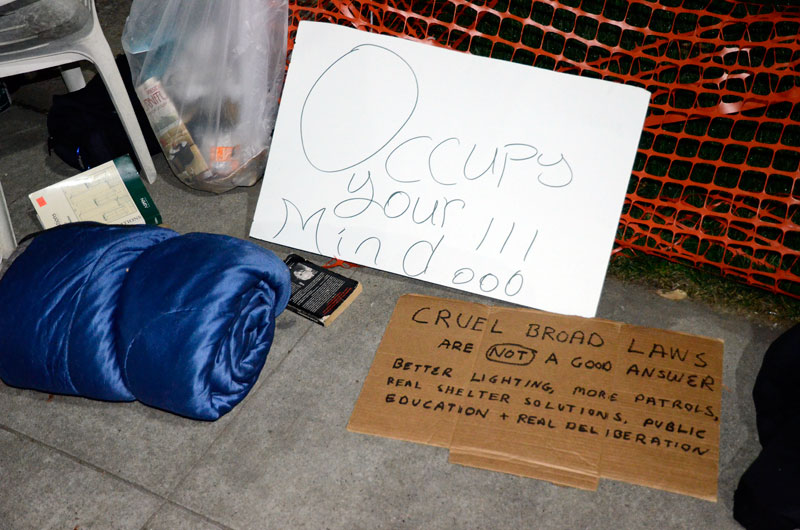 Occupy
your !!!
Mind
CRUEL BROAD LAWS
ARE NOT A GOOD ANSWER
BETTER LIGHTING, MORE PATROLS,
REAL SHELTER SOLUTIONS, PUBLIC
EDUCATION + REAL DELIBERATION